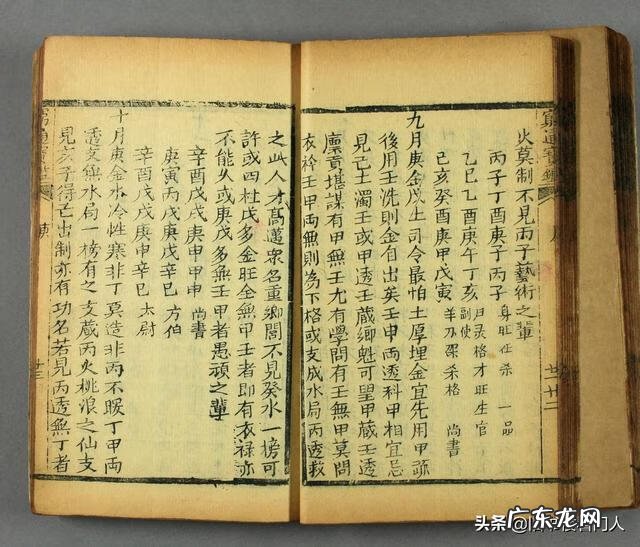 窮通寶鑑
廿二
火莫制不見丙子藝術之輩
丙子丁酉庚子丙子 身旺任杀 一品
乙巳乙酉庚午丁亥 月刃格才旺生官 副使
己亥癸酉庚申戊寅 羊刃架杀格 尚書
九月庚金以土司令最怕土厚埋金宜先用甲疏
後用壬洗則金自出矣壬甲両透科甲相宜忌
見己土濁壬或甲透壬藏鄉魁可望甲藏壬透
廩貢堪謀有甲無壬尤有學問有壬無甲莫問
衣衿壬甲両無則為下格或支成水局丙透救
之此人才髙邁衆名重鄉閭不見癸水一榜可
許或四柱戊多金旺全無甲壬者即有衣祿亦
不能久或庚戊多無壬甲者愚頑之輩
辛酉戊戌庚申甲申 尚書
庚寅丙戌庚申辛巳 方伯
辛酉戊戌庚申辛巳 太尉
十月庚金水冷性寒非丁莫造非丙不暖丁甲両
透支無水局一榜有之支藏丙火桃浪之仙支
見亥子得己出制亦有功名若見丙透無丁者
窮通寶鑑 庚
廿三
头条
广东龙网